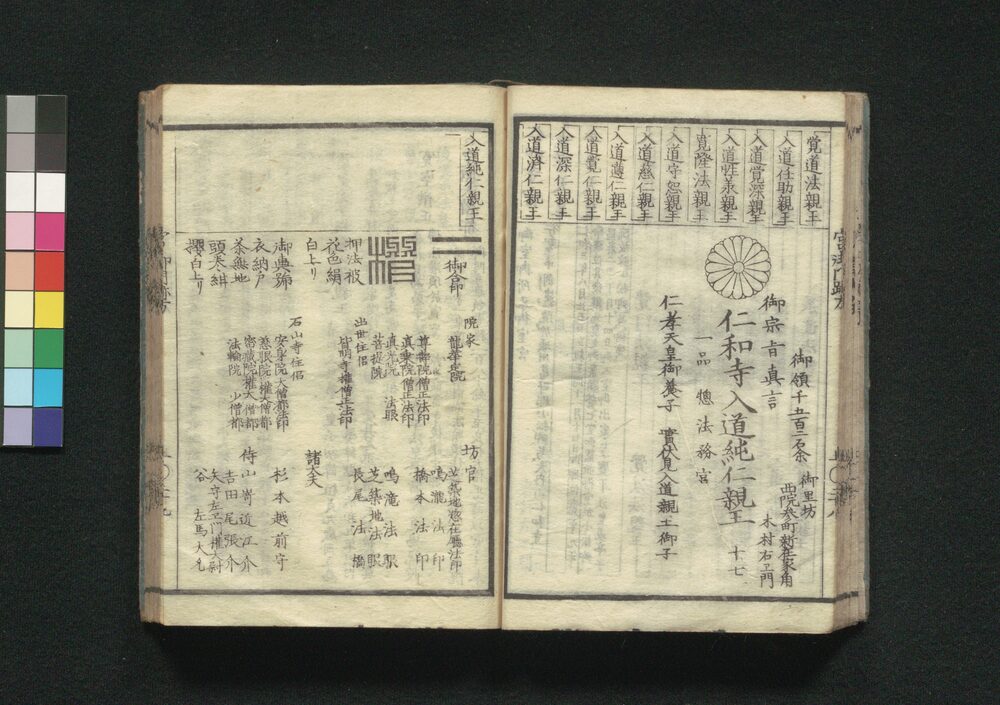 覚道法親王
入道任助親王
入道覚深親王
入道性承親王
寛隆法親王
入道守恕親王
入道慈仁親王
入道遵仁親王
入道覚仁親王
入道深仁親王
入道済仁親王
御領千五百二石余
御里坊
西院参町新在家角
木村右ヱ門
御宗旨真言
仁和寺入道純仁親王
十七
一品 惣法務宮
仁孝天皇御養子 實伏見入道親王御子
入道純仁親王
御合印
押法被
花色絹
白上り
御典號
衣納戸
茶無地
頭巻紺
白上り
院家
龍華院
尊壽院僧正法印
真乗院僧正法印
真光院 法眼
菩提院
出世住侶
皆明寺権僧正法印
石山寺住侶
安身院大僧都法印
慈眼院権大僧都
密蔵院権大僧都
法輪院 少僧都
坊官
芝築地惣在廳法印
鳴瀧法印
橋本法印
鳴滝法眼
芝築地法眼
長尾法橋
諸大夫
杉本越前守
侍
山嵜近江介
吉田尾張介
矢守左ヱ門権大尉
谷 左馬大允